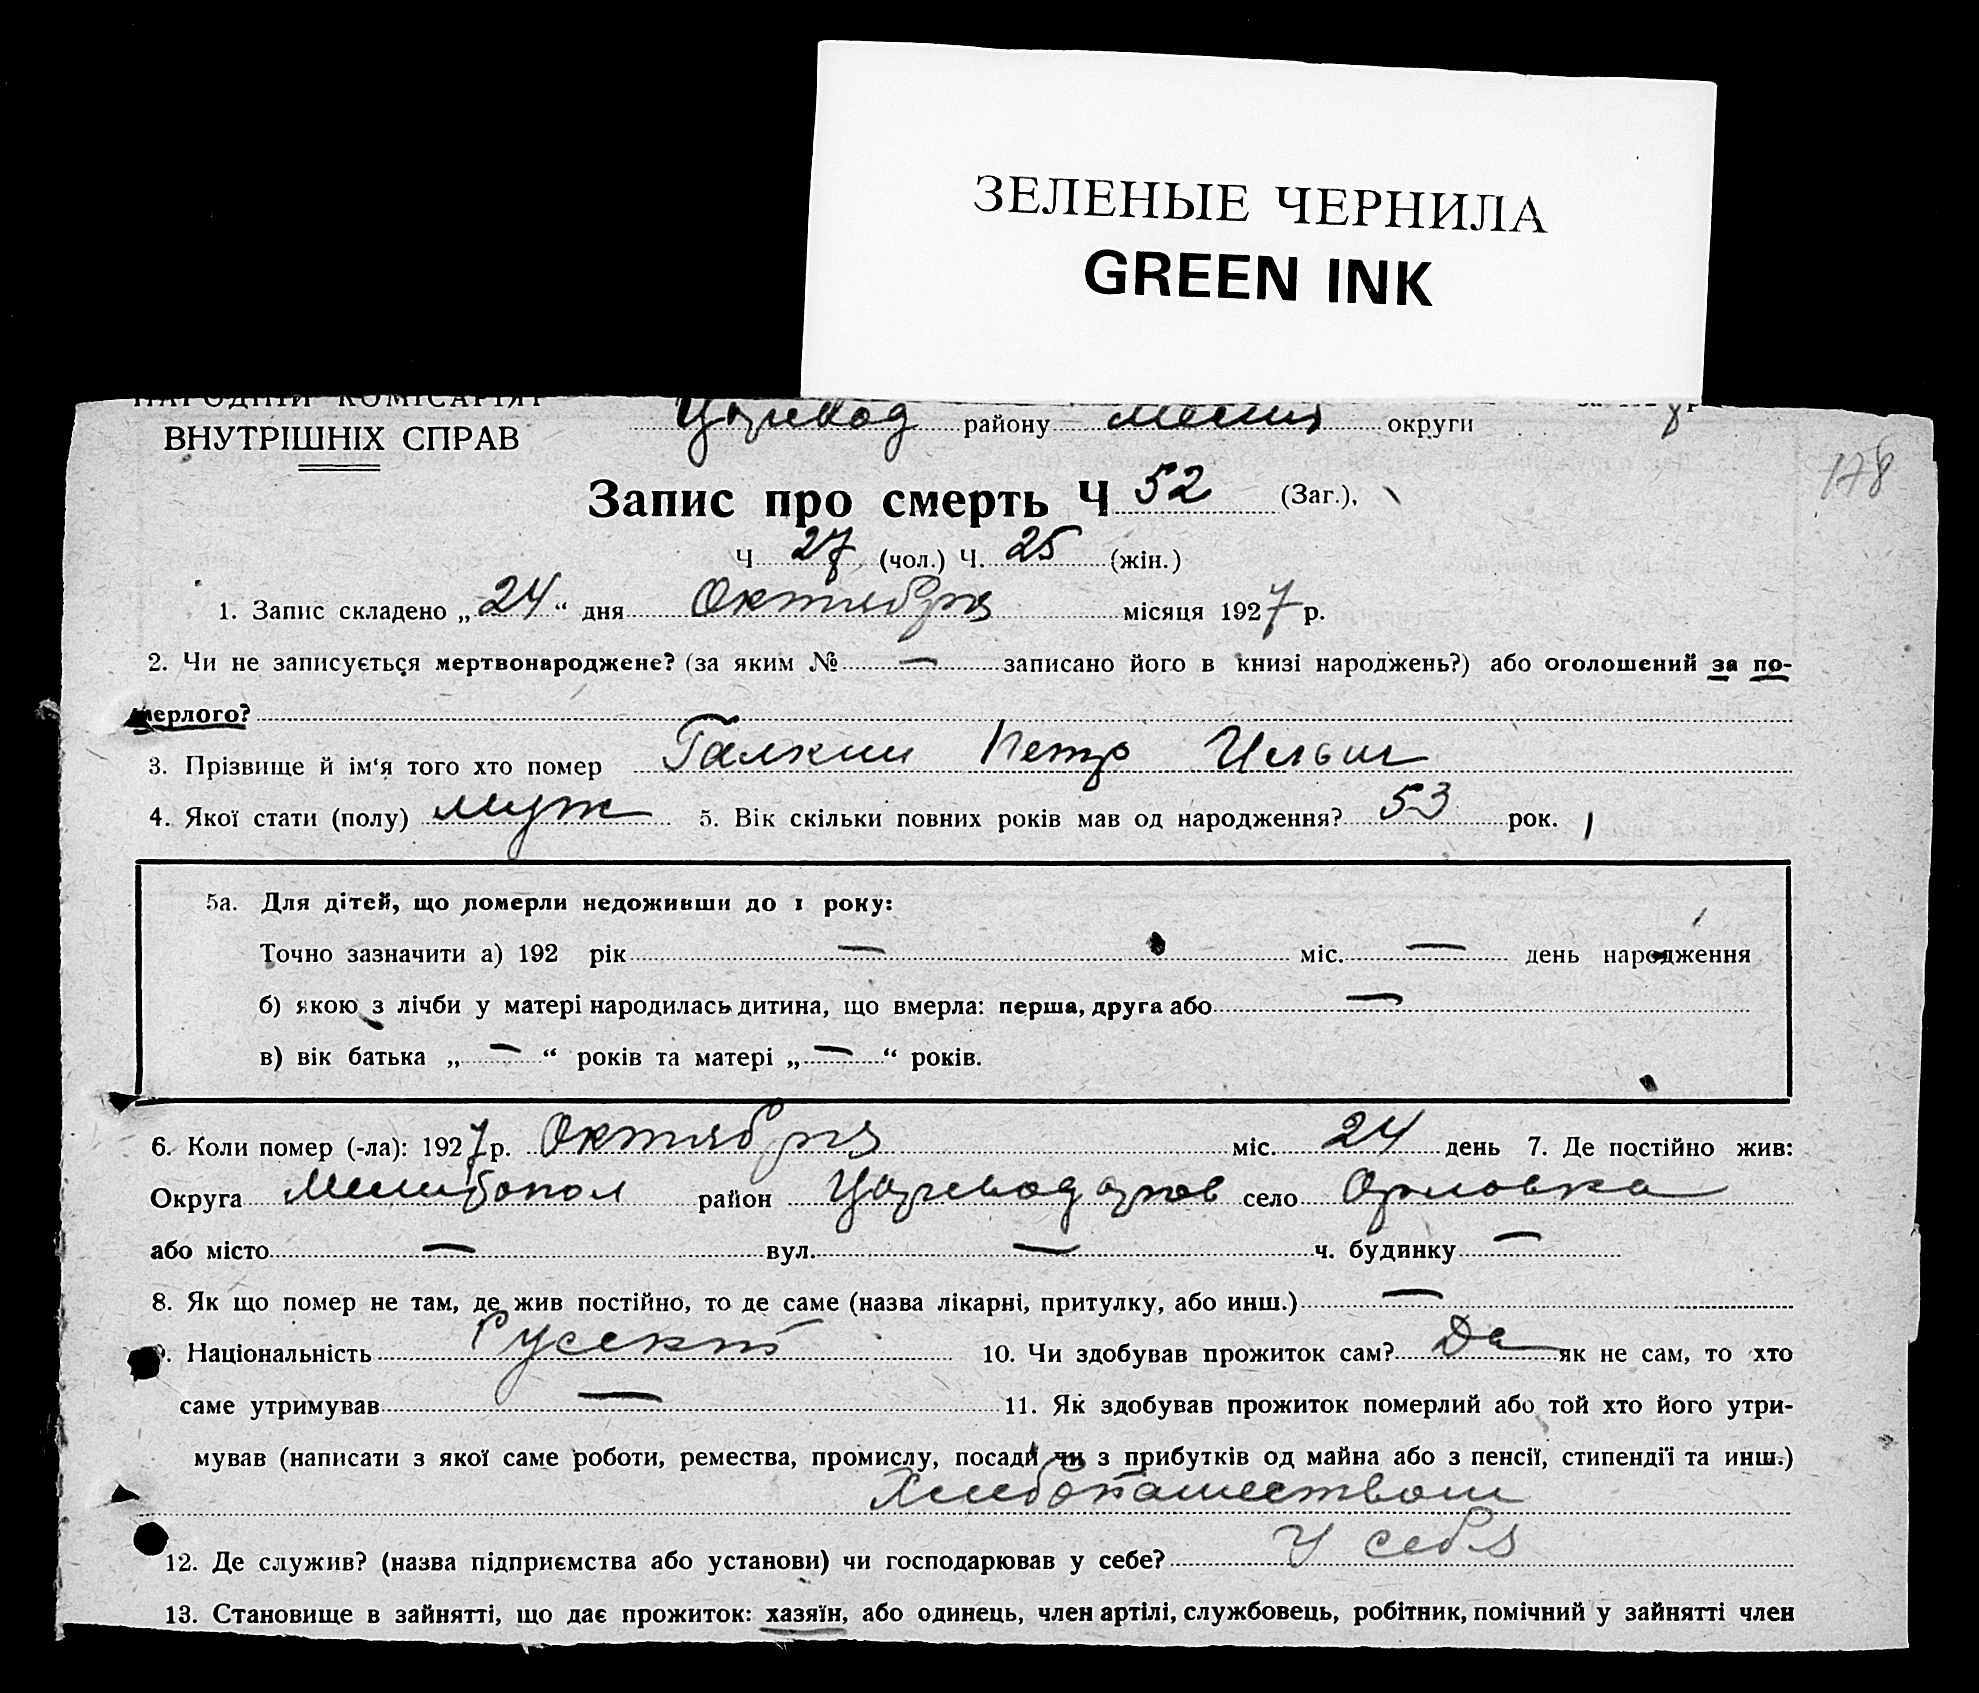 ЗЕЛЕНЫЕ ЧЕРНИЛА
GREEN INK
НАРОДНІЙ КОМІСАРІЯТ
ВНУТРІШНІХ СПРАВ
Царевод району Мелит округи
178
Запис про смерть Ч 52 (Заг.),
Ч 27 (чол.) Ч. 25 (жін.)
1. Запис складено „ 24 “ дня Октября місяця 1927 р.
2. Чи не записується мертвонароджене? (за яким № — записано його в книзі народжень?) або оголошений за по-
мерлого?
3. Прізвище й ім‘я того хто помер Галкин Петр Ильич
4. Якої стати (полу) муж 5. Вік скільки повних років мав од народження? 53 рок.
5а. Для дітей, що померли недоживши до 1 року:
Точно зазначити а) 192 рік — міс. — день народження
б) якою з лічби у матері народилась дитина, що вмерла: перша, друга або —
в) вік батька „ — “ років та матері „ — “ років.
6. Коли помер (-ла): 1927 р. Октября міс. 24 день 7. Де постійно жив:
Округа Мелитопол район Цареводаров село Орловка
або місто — вул. — ч. будинку —
8. Як що помер не там, де жив постійно, то де саме (назва лікарні, притулку, або инш.) —
9. Національність Русский 10. Чи здобував прожиток сам? Да як не сам, то хто
саме утримував — 11. Як здобував прожиток померлий або той хто його утри-
мував (написати з якої саме роботи, ремества, промислу, посади чи з прибутків од майна або з пенсії, стипендії та инш.)
Хлебопашеством
12. Де служив? (назва підприємства або установи) чи господарював у себе? У себя
13. Становище в зайнятті, що дає прожиток: хазяїн, або одинець, член артілі, службовець, робітник, помічний у зайнятті член